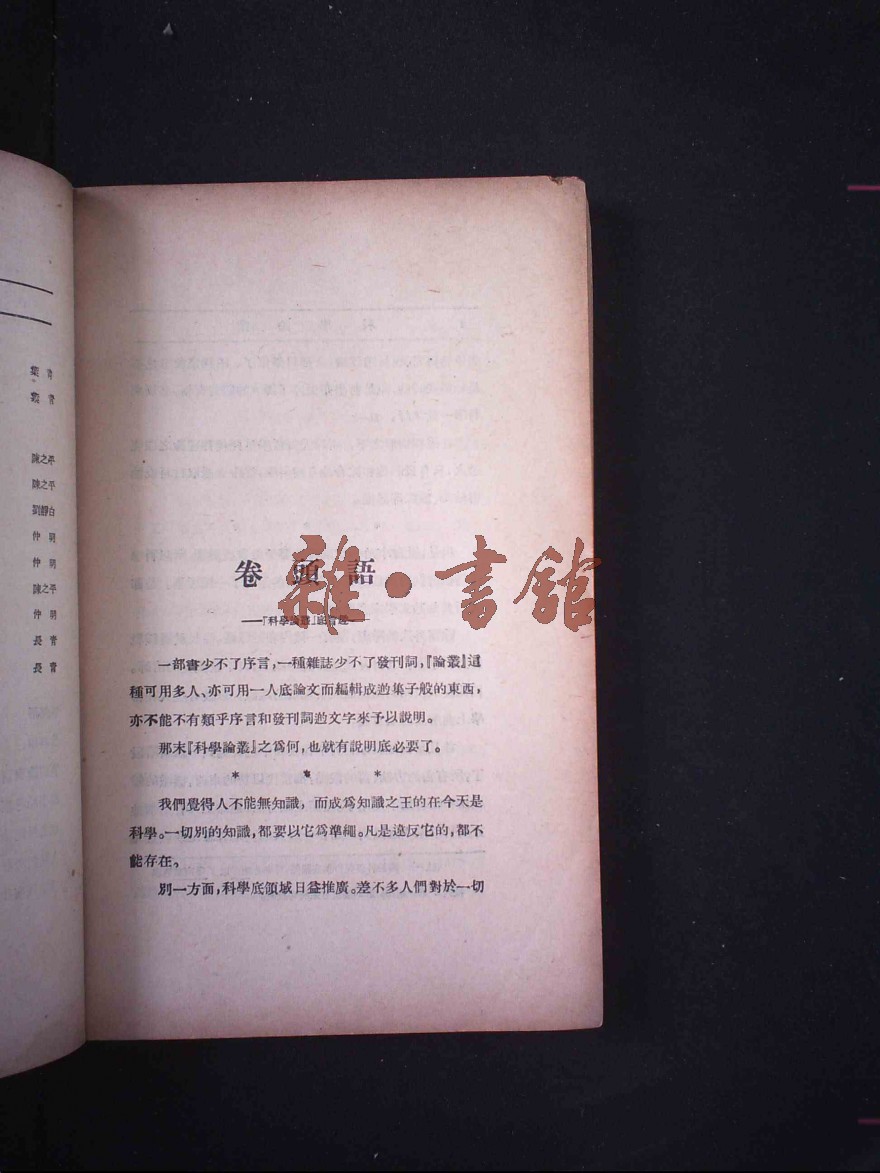 葉青
葉青
陳之平
陳之平
劉靜白
仲明
仲明
陳之平
仲明
長青
長青
雜·書館
卷頭語
——『科學論叢』底
一部書少不了序言，一種雜誌少不了發刊詞，『論叢』這
種可用多人、亦可用一人底論文而編輯成的集子般的東西，
亦不能不有類乎序言和發刊詞的文字來予以說明。
那末『科學論叢』之爲何，也就有說明底必要了。
* * *
我們覺得人不能無知識，而成爲知識之王的在今天是
科學。一切別的知識，都要以它爲準繩。凡是違反它的，都不
能存在。
別一方面，科學底領域日益推廣。差不多人們對於一切